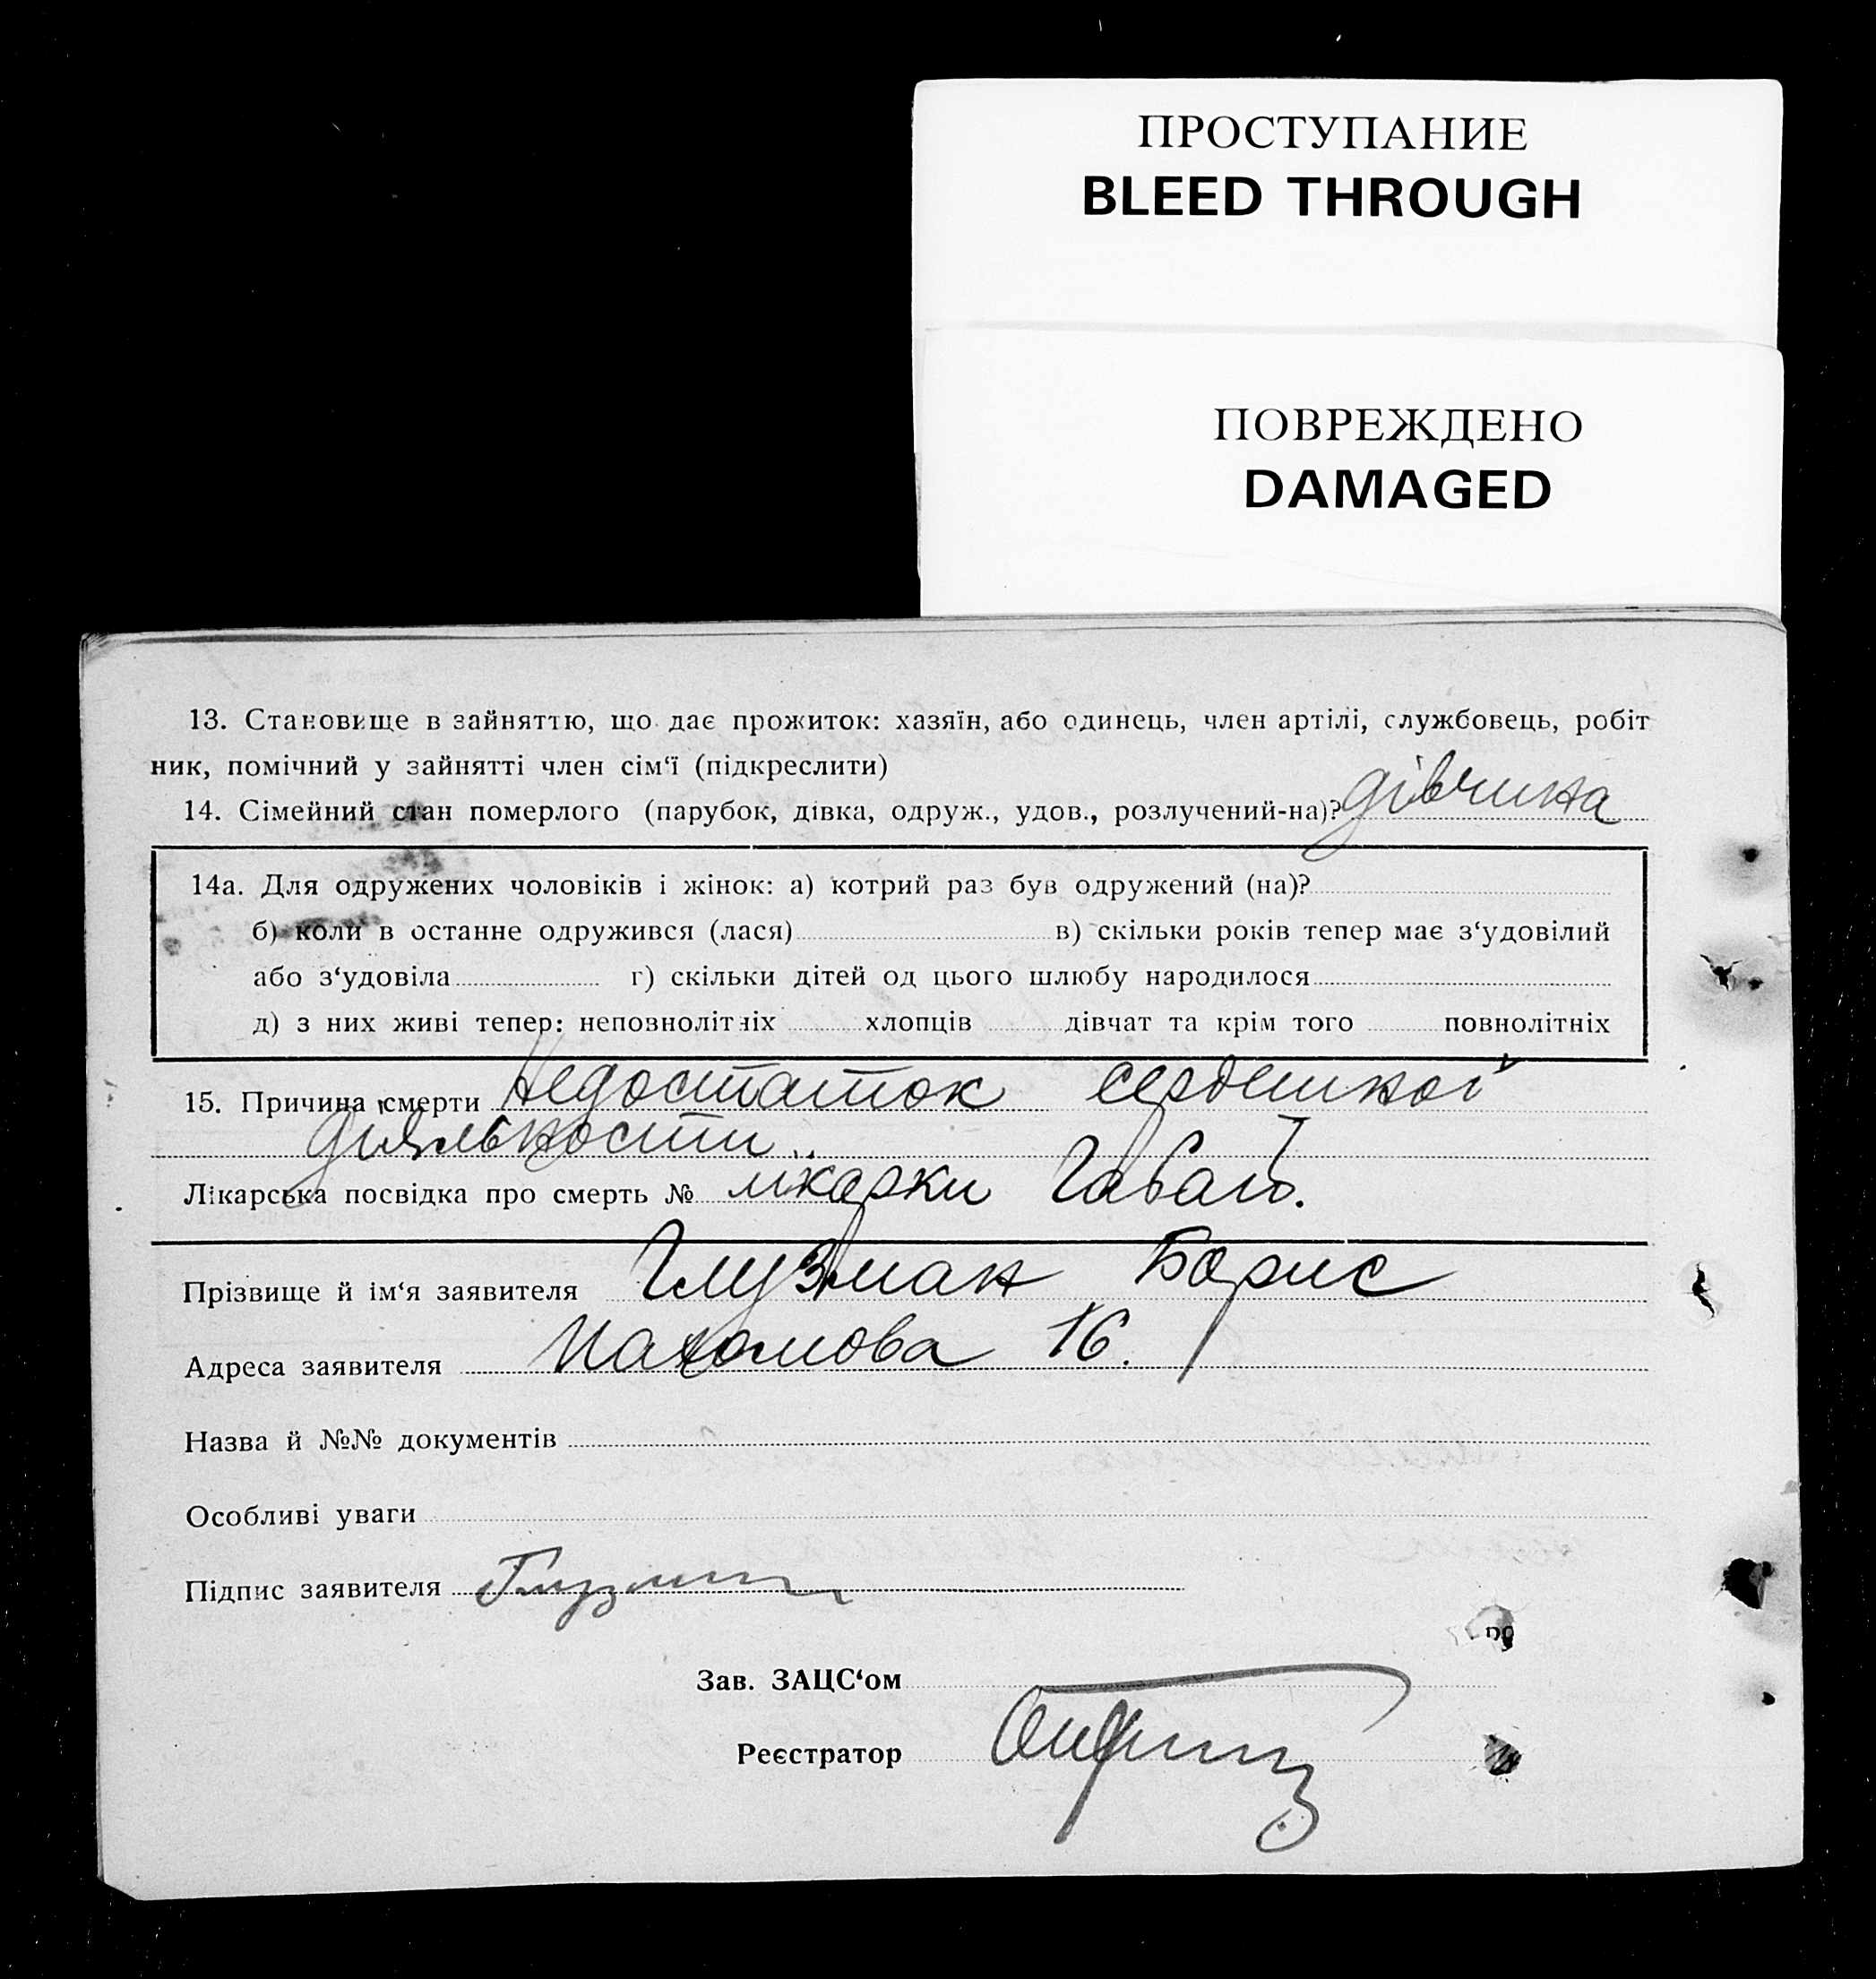 ПРОСТУПАНИЕ
BLEED THROUGH
ПОВРЕЖДЕНО
DAMAGED
13. Становище в зайняттю, що дає прожиток: хазяїн, або одинець, член артілі, службовець, робіт
ник, помічний у зайнятті член сім‘ї (підкреслити)
14. Сімейний стан померлого (парубок, дівка, одруж., удов., розлучений-на)? дівчина
14а. Для одружених чоловіків і жінок: а) котрий раз був одружений (на)?
б) коли в останне одружився (лася) в) скільки років тепер має з‘удовілий
або з‘удовіла г) скільки дітей од цього шлюбу народилося
д) з них живі тепер: неповнолітніх хлопців дівчат та крім того повнолітніх
15. Причина смерти Недостаток сердешної
діяльности
Лікарська посвідка про смерть № лікарки
Прізвище й ім‘я заявителя Глузман Борис
Адреса заявителя Пахомова 16.
Назва й №№ документів
Особливі уваги
Підпис заявителя Глузман
Зав. ЗАЦС‘ом
Реєстратор